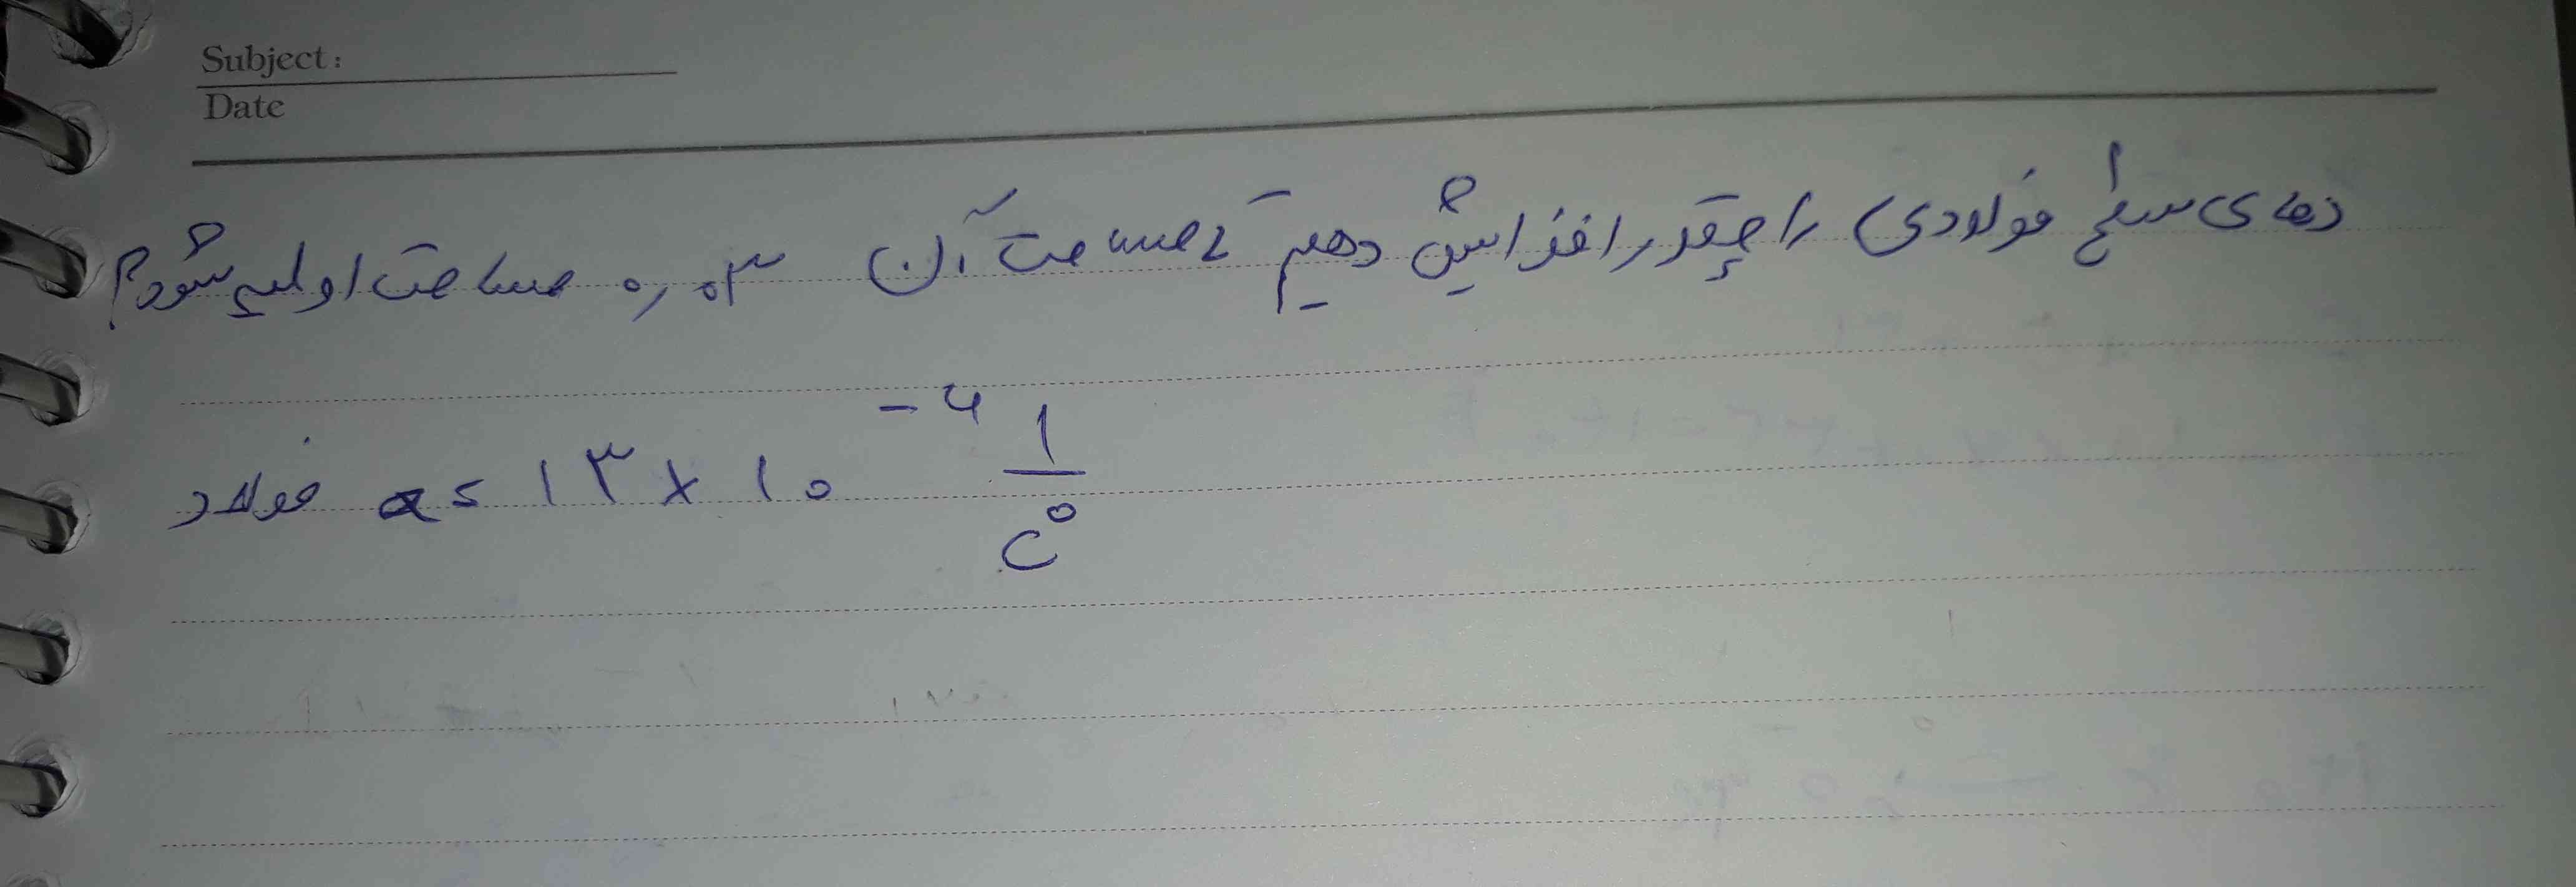 Subject:
Date
دمای سطح فولادی را چقدر افزایش دهیم تا مساحت آن ۰٫۰۳ مساحت اولیه شود؟
فولاد α = ۱۳ × ۱۰^-۶ ۱/C°